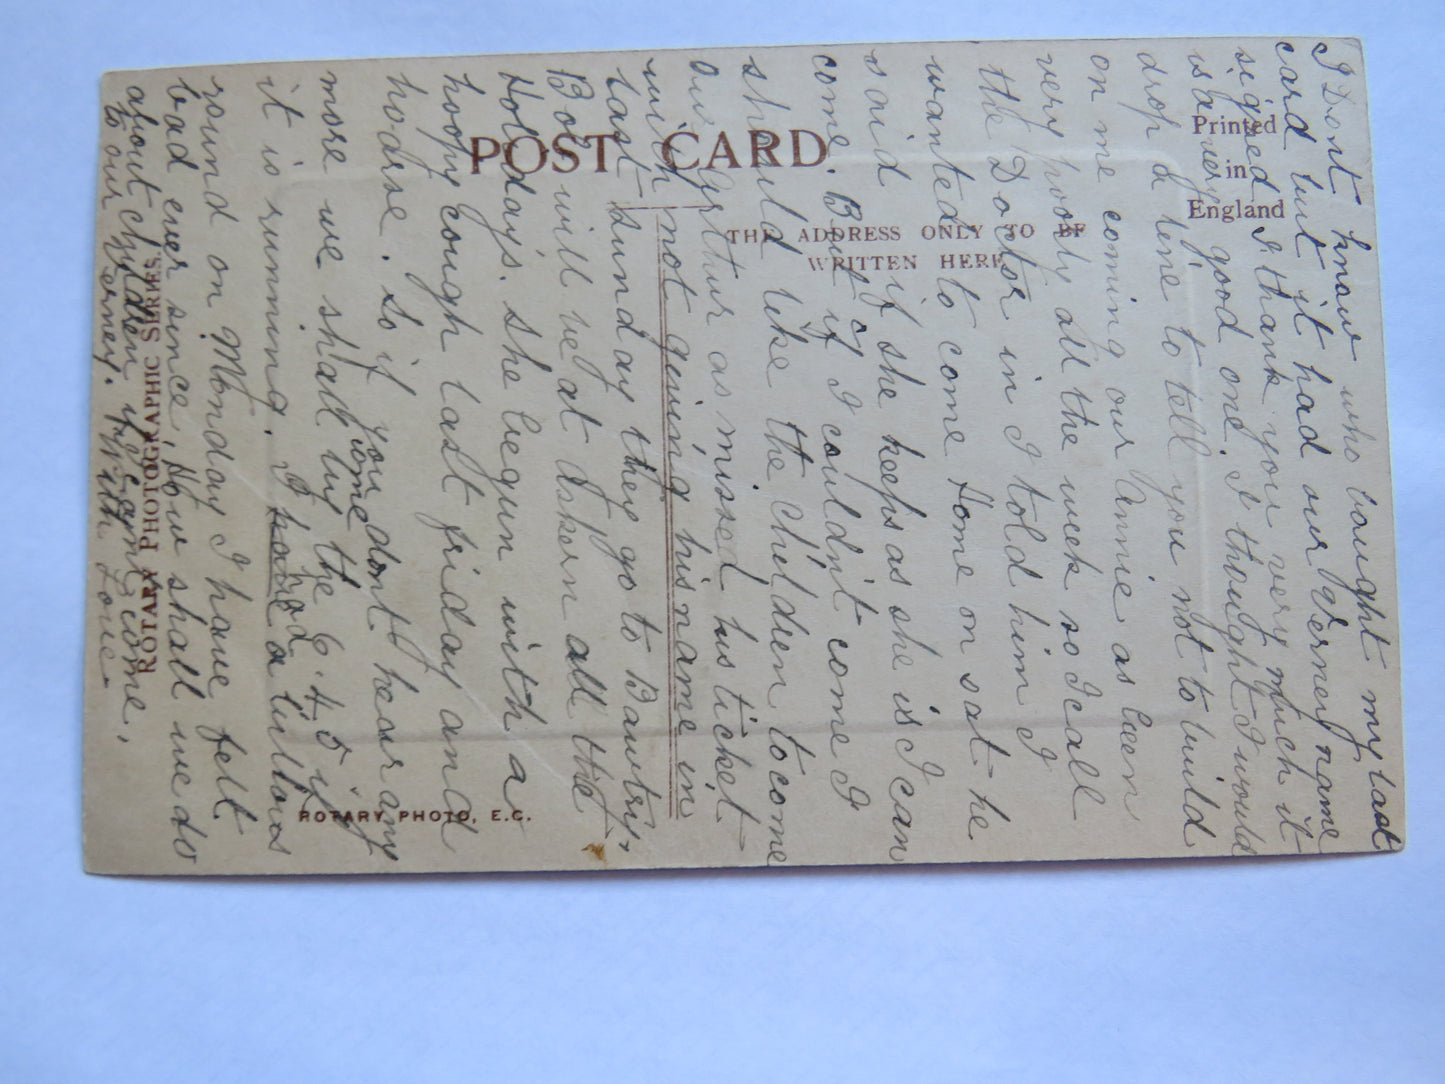 POST CARD
Printed
in
England
THE ADDRESS ONLY TO BE
WRITTEN HERE
ROTARY PHOTOGRAPHIC SERIES.
ROTARY PHOTO, E.C.
I Dont know who bought my last
card but it had our Verney name
signed I thank you very much it
is a very good one. I thought I would
drop a line to tell you not to build
on me coming our Annie as been
very poorly all the week so I call
the Doctor in I told him I
wanted to come Home on sat he
said if she keeps as she is I can
come. But if I couldn't come I
should like the children to come
our Arthur as missed his ticket
with not giving his name in
last sunday they go to Bawtry,
Boy will be at Askern all the
Holidays. she begun with a
hoopy cough last friday and
hoarse. So if you dont hear any
more we shall by the 6.45 if
it is running. I a bilious
round on Monday I have felt
bad ever since, How shall we do
about children if come,
to our Verney. With Love